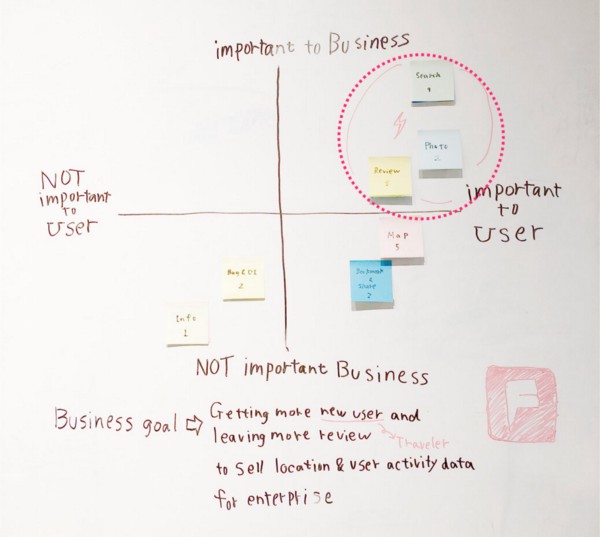 important to Business
Search
Photo
2
Review
NOT
important
to
User
important
to
User
Map
Info
1
2
&
Share
2
NOT important Business
Business goal ⇨ Getting more new user and
leaving more review
Traveler
to sell location & user activity data
for enterprise
F